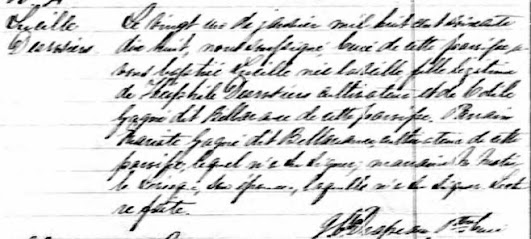 Lucille Le vingt un de janvier mil huit cent soixante
Desrosiers dix huit, nous soussigné, curé de cette paroisse a
vons baptisé Lucille née la veille, fille légitime
de Théophile Desrosiers cultivateur et de Odile
Gagné dit Bellavance de cette paroisse. Parrain
Gagné dit Bellavance cultivateur de cette
paroisse, lequel n'a su signer; marraine
son épouse, laquelle n'a su signer. Lecture
faite.
Drapeau Ptre curé